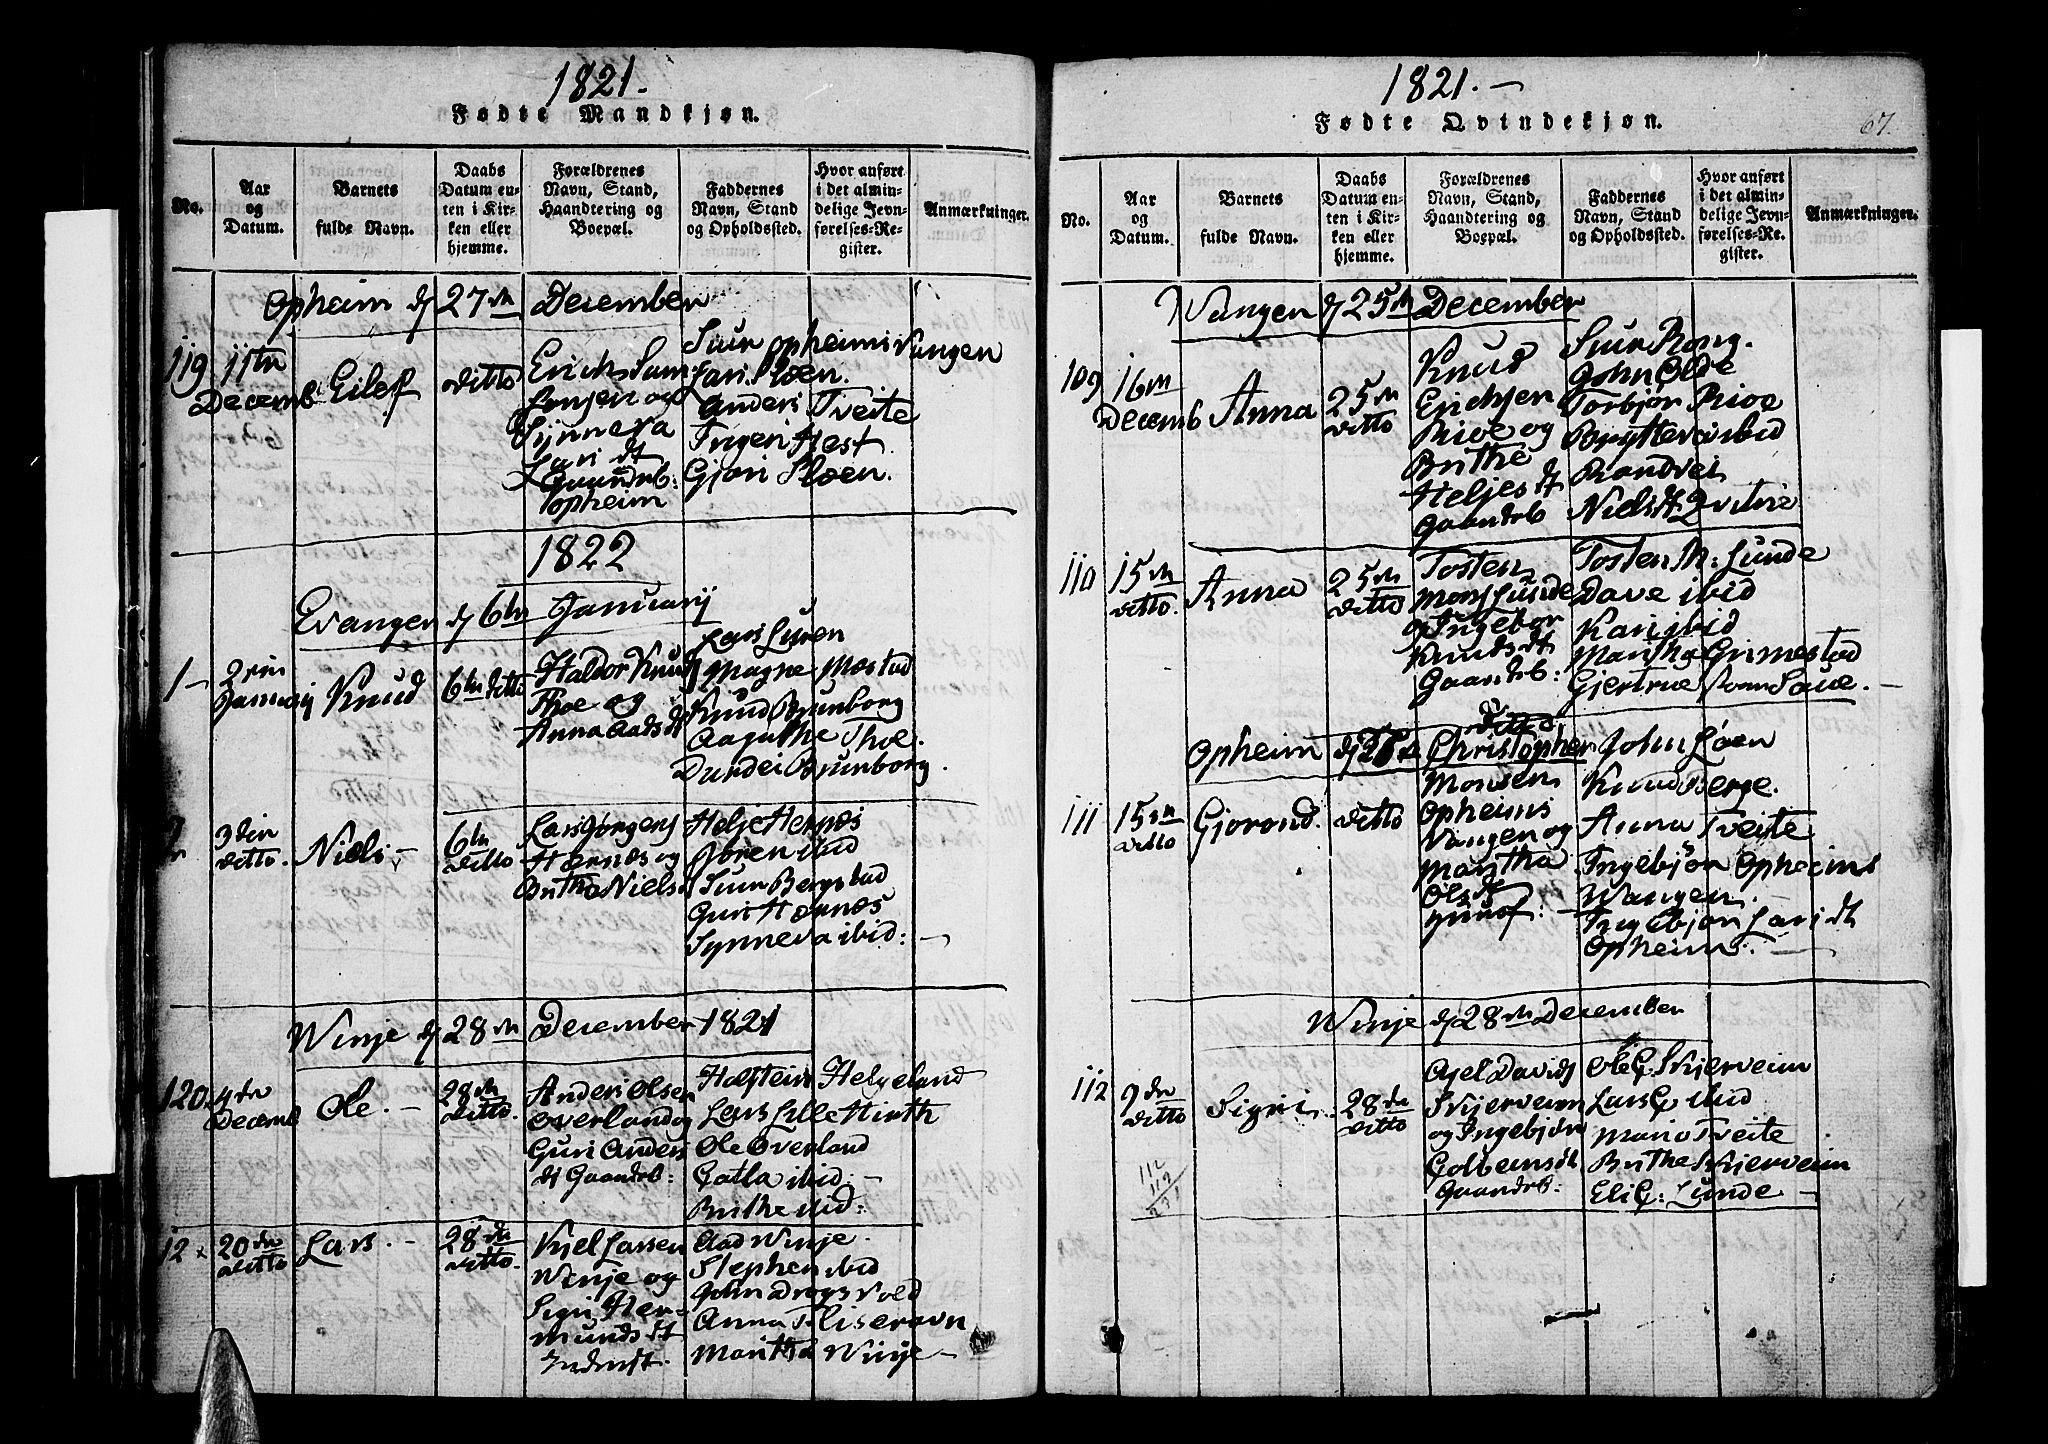 1821.
Fødte Mandkjøn.
No.
Aar
og
Datum.
Barnets
fulde Navn.
Daabs
Datum en-
ten i Kir-
ken eller
hjemme.
Forældrenes
Navn, Stand,
Haandtering og
Boepæl.
Faddernes
Navn, Stand
og Opholdssted.
Hvor anført
i det almin-
delige Jevn-
førelses-Re-
gister.
Anmærkninger.
Opheim d 27de December
119
11te
Decemb
Eilef
ditto
Erich
og
Synneva
Lars dt
Gaardb:
Opheim
Siur Opheimsvangen
Anders Tveite
Ingeri Hest
Gjøri
1822
Evanger d 6te Januarij
1
2den
Januarij
Knud
6te ditto
Haldor Knuds
Thoe og
Anna Aadsdt
Lars
Magne Mostad
Knud Brunborg
Aagathe Thoe.
Durdei Brunborg.
2
3die
ditto.
Niels
6te
ditto
Lars Jørgens
Hernæs og
Britha Niels
Helje Hernæs
Jøren ibid
Siur Bergstad
Guri Hernæs
Synneva ibid:
Winje d 28de December 1821
120
4de
Decemb
Ole.
28de
ditto.
Anders Olsen
Overland og
Guri Anders
dt Gaardb:
Holstein Helgeland
Lars Lille Hirth
Ole Overland
Gatla ibid.
Brithe ibid:
12
20de
ditto
Lars.
28de
ditto.
Kjel Larsen
Winje og
Sigri Her-
munds dt
Inderst.
Aad Winje.
Stephen ibid
John Drogsvold
Anna
Maritha Winje
1821.
Fødte Qvindekjøn.
67.
No.
Aar
og
Datum.
Barnets
fulde Navn.
Daabs
Datum en-
ten i Kir-
ken eller
hjemme.
Forældrenes
Navn, Stand,
Haandtering og
Boepæl.
Faddernes
Navn, Stand
og Opholdssted.
Hvor anført
i det almin-
delige Jevn-
førelses-Re-
gister.
Anmærkninger.
Wangen d 25de December
109
16de
Decemb
Anna
25de
ditto
Knud
Erichsen
og
Brithe
Heljesdt
Gaardb
Siur Rong.
John Olde
Torbjør
Brytteva ibid
Randvei
Nielsdt
110
15de
ditto.
Anna
25de
ditto
Tosten
Mons Lunde
og Ingebor
Knudsdt
Gaardb:
Tosten M: Lunde
Dave ibid
Kari ibid
Martha Grimestad
Gjertrue
Opheim
ditto
111
15de
ditto
Gjorond.
ditto
Christopher
Monsen
Opheims
Vangen og
Martha
Olsdt
John Løen
Knud Berge.
Anna Tveite
Ingebjør Opheims
Wangen.
Ingebjør Larsdt
Opheim.
Winje d 28de December
112
9de
ditto
Sigri
28de
ditto
Axel Davids
Skjerveim
og Ingebjør
Golbeinsdt
Gaardb.
Ole G. Skjerveim
Lars G ibid
Mari Tveite
Brithe Skjerveim
Eli G: Lunde
112
119
231